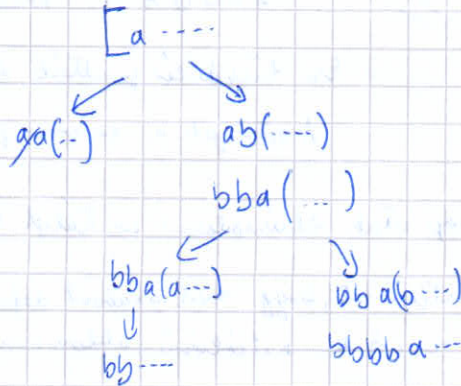 [a ·····
aa(··) ab(····)
bba(...)
bba(a···) bba(b···)
bb···· bbbba···